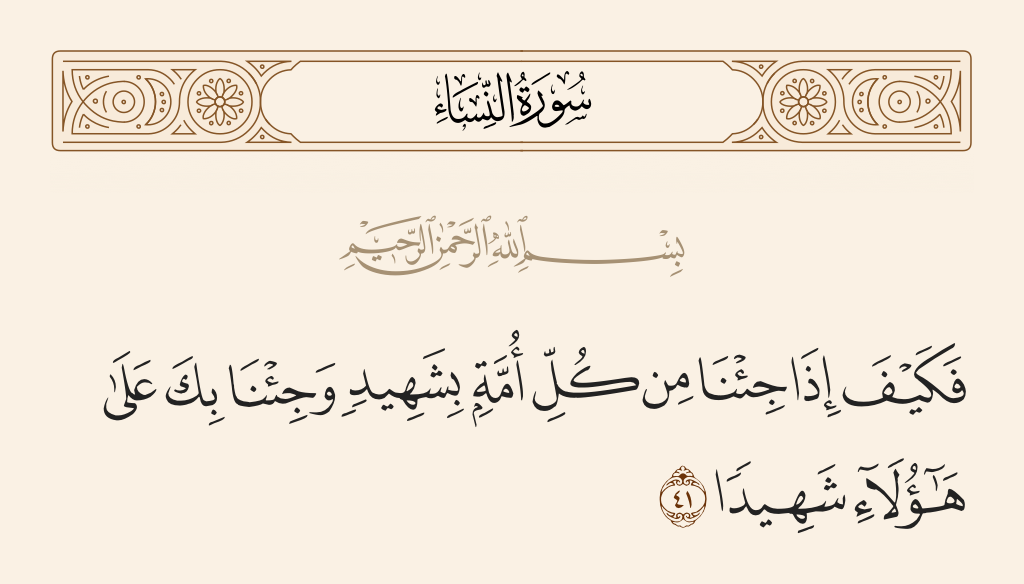 سُورَةُ النِّسَاءِ
بِسْمِ ٱللَّهِ ٱلرَّحْمَٰنِ ٱلرَّحِيمِ
فَكَيْفَ إِذَا جِئْنَا مِن كُلِّ أُمَّةٍۭ بِشَهِيدٍ وَجِئْنَا بِكَ عَلَىٰ
هَٰٓؤُلَآءِ شَهِيدًا ٤١